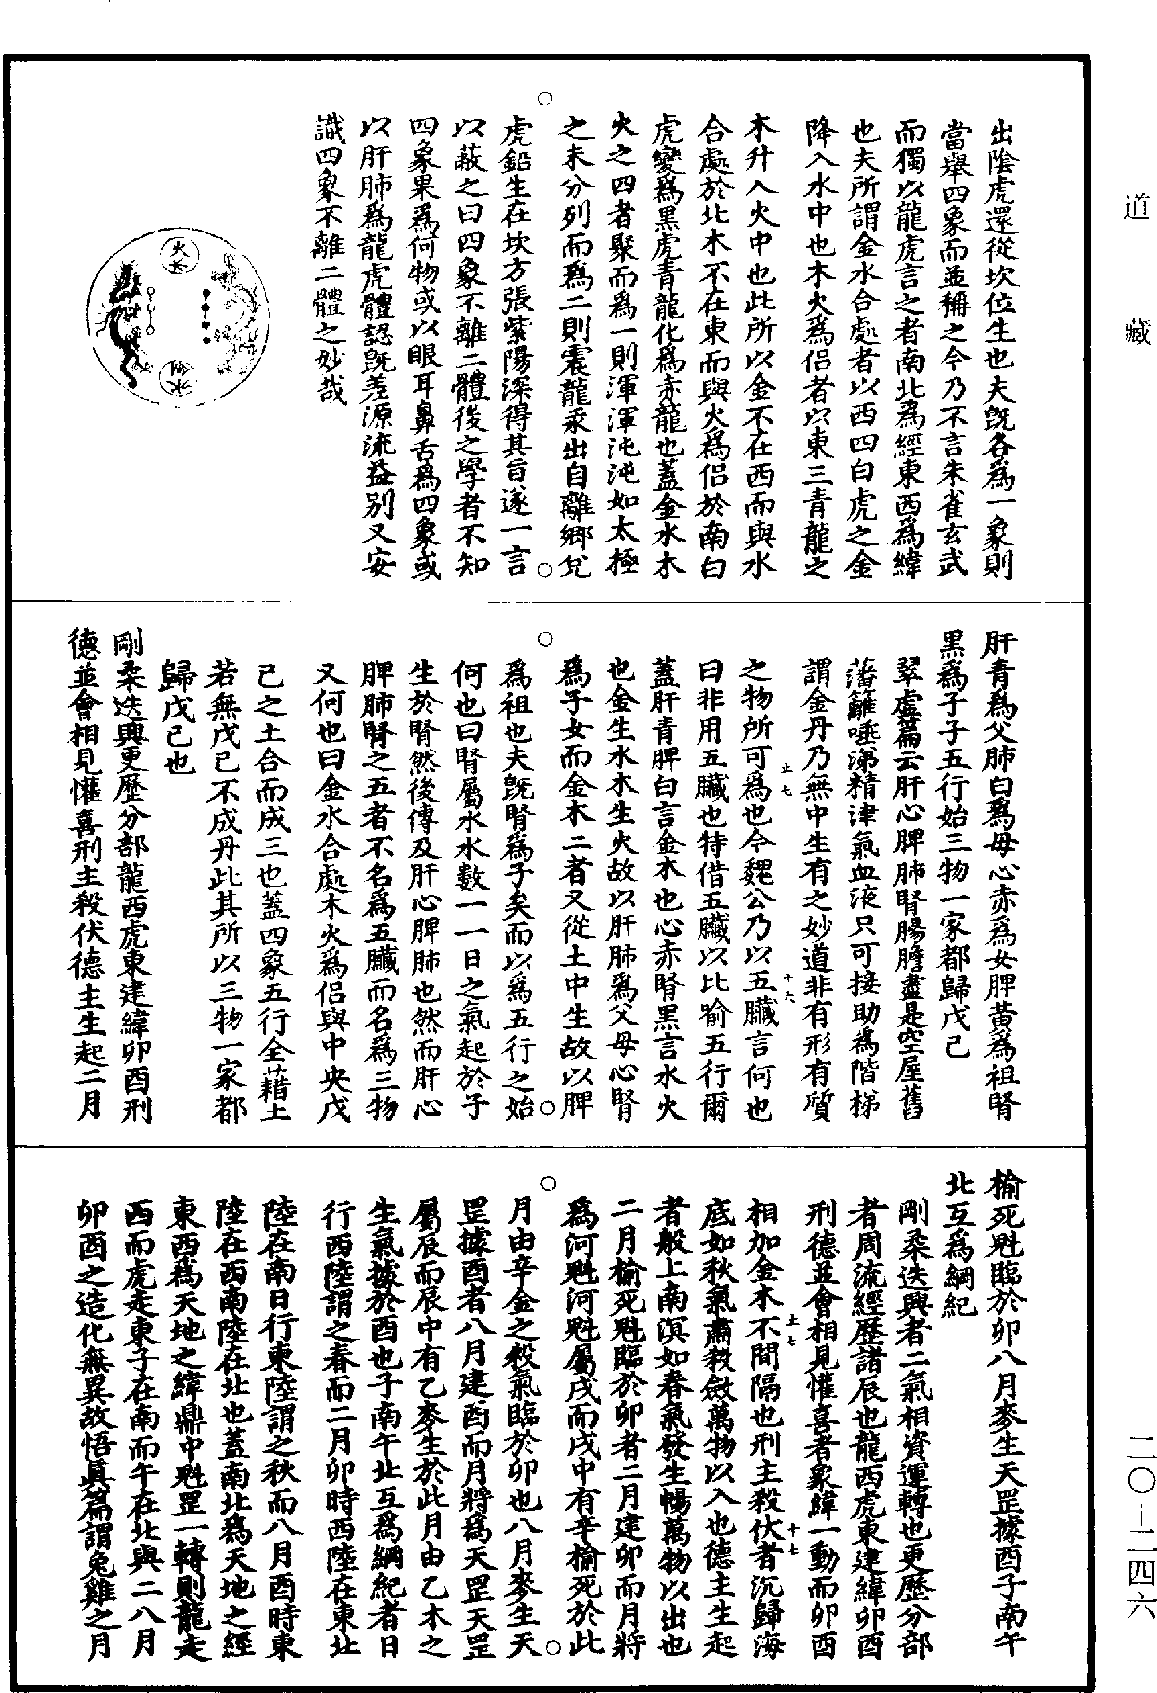 道藏
出陰虎還從坎位生也夫旣各爲一象則
當舉四象而並稱之今乃不言朱雀玄武
而獨以龍虎言之者南北爲經東西爲緯
也夫所謂金水合處者以西四白虎之金
降入水中也木火爲侶者以東三青龍之
木升入火中也此所以金不在西而與水
合處於北木不在東而與火爲侶於南白
虎變爲黑虎青龍化爲赤龍也蓋金水木
火之四者聚而爲一則渾渾沌沌如太極
之未分列而爲二則震龍汞出自離鄉兌
虎鉛生在坎方張紫陽深得其旨遂一言
以蔽之曰四象不離二體後之學者不知
四象果爲何物或以眼耳鼻舌爲四象或
以肝肺爲龍虎體認旣差源流益別又安
識四象不離二體之妙哉
火木
金水
肝青爲父肺白爲母心赤爲女脾黃爲祖腎
黑爲子子五行始三物一家都歸戊己
翠虛篇云肝心脾肺腎腸膽盡是空屋舊
藩籬唾涕精津氣血液只可接助爲階梯
謂金丹乃無中生有之妙道非有形有質
之物所可爲也今魏公乃以五臟言何也
曰非用五臟也特借五臟以比喻五行爾
蓋肝青脾白言金木也心赤腎黑言水火
也金生水木生火故以肝肺爲父母心腎
爲子女而金木二者又從土中生故以脾
爲祖也夫旣腎爲子矣而以爲五行之始
何也曰腎屬水水數一一日之氣起於子
生於腎然後傳及肝心脾肺也然而肝心
脾肺腎之五者不名爲五臟而名爲三物
又何也曰金水合處木火爲侶與中央戊
己之土合而成三也蓋四象五行全藉土
若無戊己不成丹此其所以三物一家都
歸戊己也
剛柔迭興更歷分部龍西虎東建緯卯酉刑
德並會相見懽喜刑主殺伏德主生起二月
上七
十六
榆死魁臨於卯八月麥生天罡據酉子南午
北互爲綱紀
剛柔迭興者二氣相資運轉也更歷分部
者周流經歷諸辰也龍西虎東建緯卯酉
刑德並會相見懽喜者象緯一動而卯酉
相加金木不間隔也刑主殺伏者沉歸海
底如秋氣肅殺斂萬物以入也德主生起
者般上南溟如春氣發生暢萬物以出也
二月榆死魁臨於卯者二月建卯而月將
爲河魁河魁屬戌而戌中有辛榆死於此
月由辛金之殺氣臨於卯也八月麥生天
罡據酉者八月建酉而月將爲天罡天罡
屬辰而辰中有乙麥生於此月由乙木之
生氣據於酉也子南午北互爲綱紀者日
行西陸謂之春而二月卯時西陸在東北
陸在南日行東陸謂之秋而八月酉時東
陸在西南陸在北也蓋南北爲天地之經
東西爲天地之緯鼎中魁罡一轉則龍走
西而虎走東子在南而午在北與二八月
卯酉之造化無異故悟眞篇謂兔雞之月
上七
十七
二〇－二四六